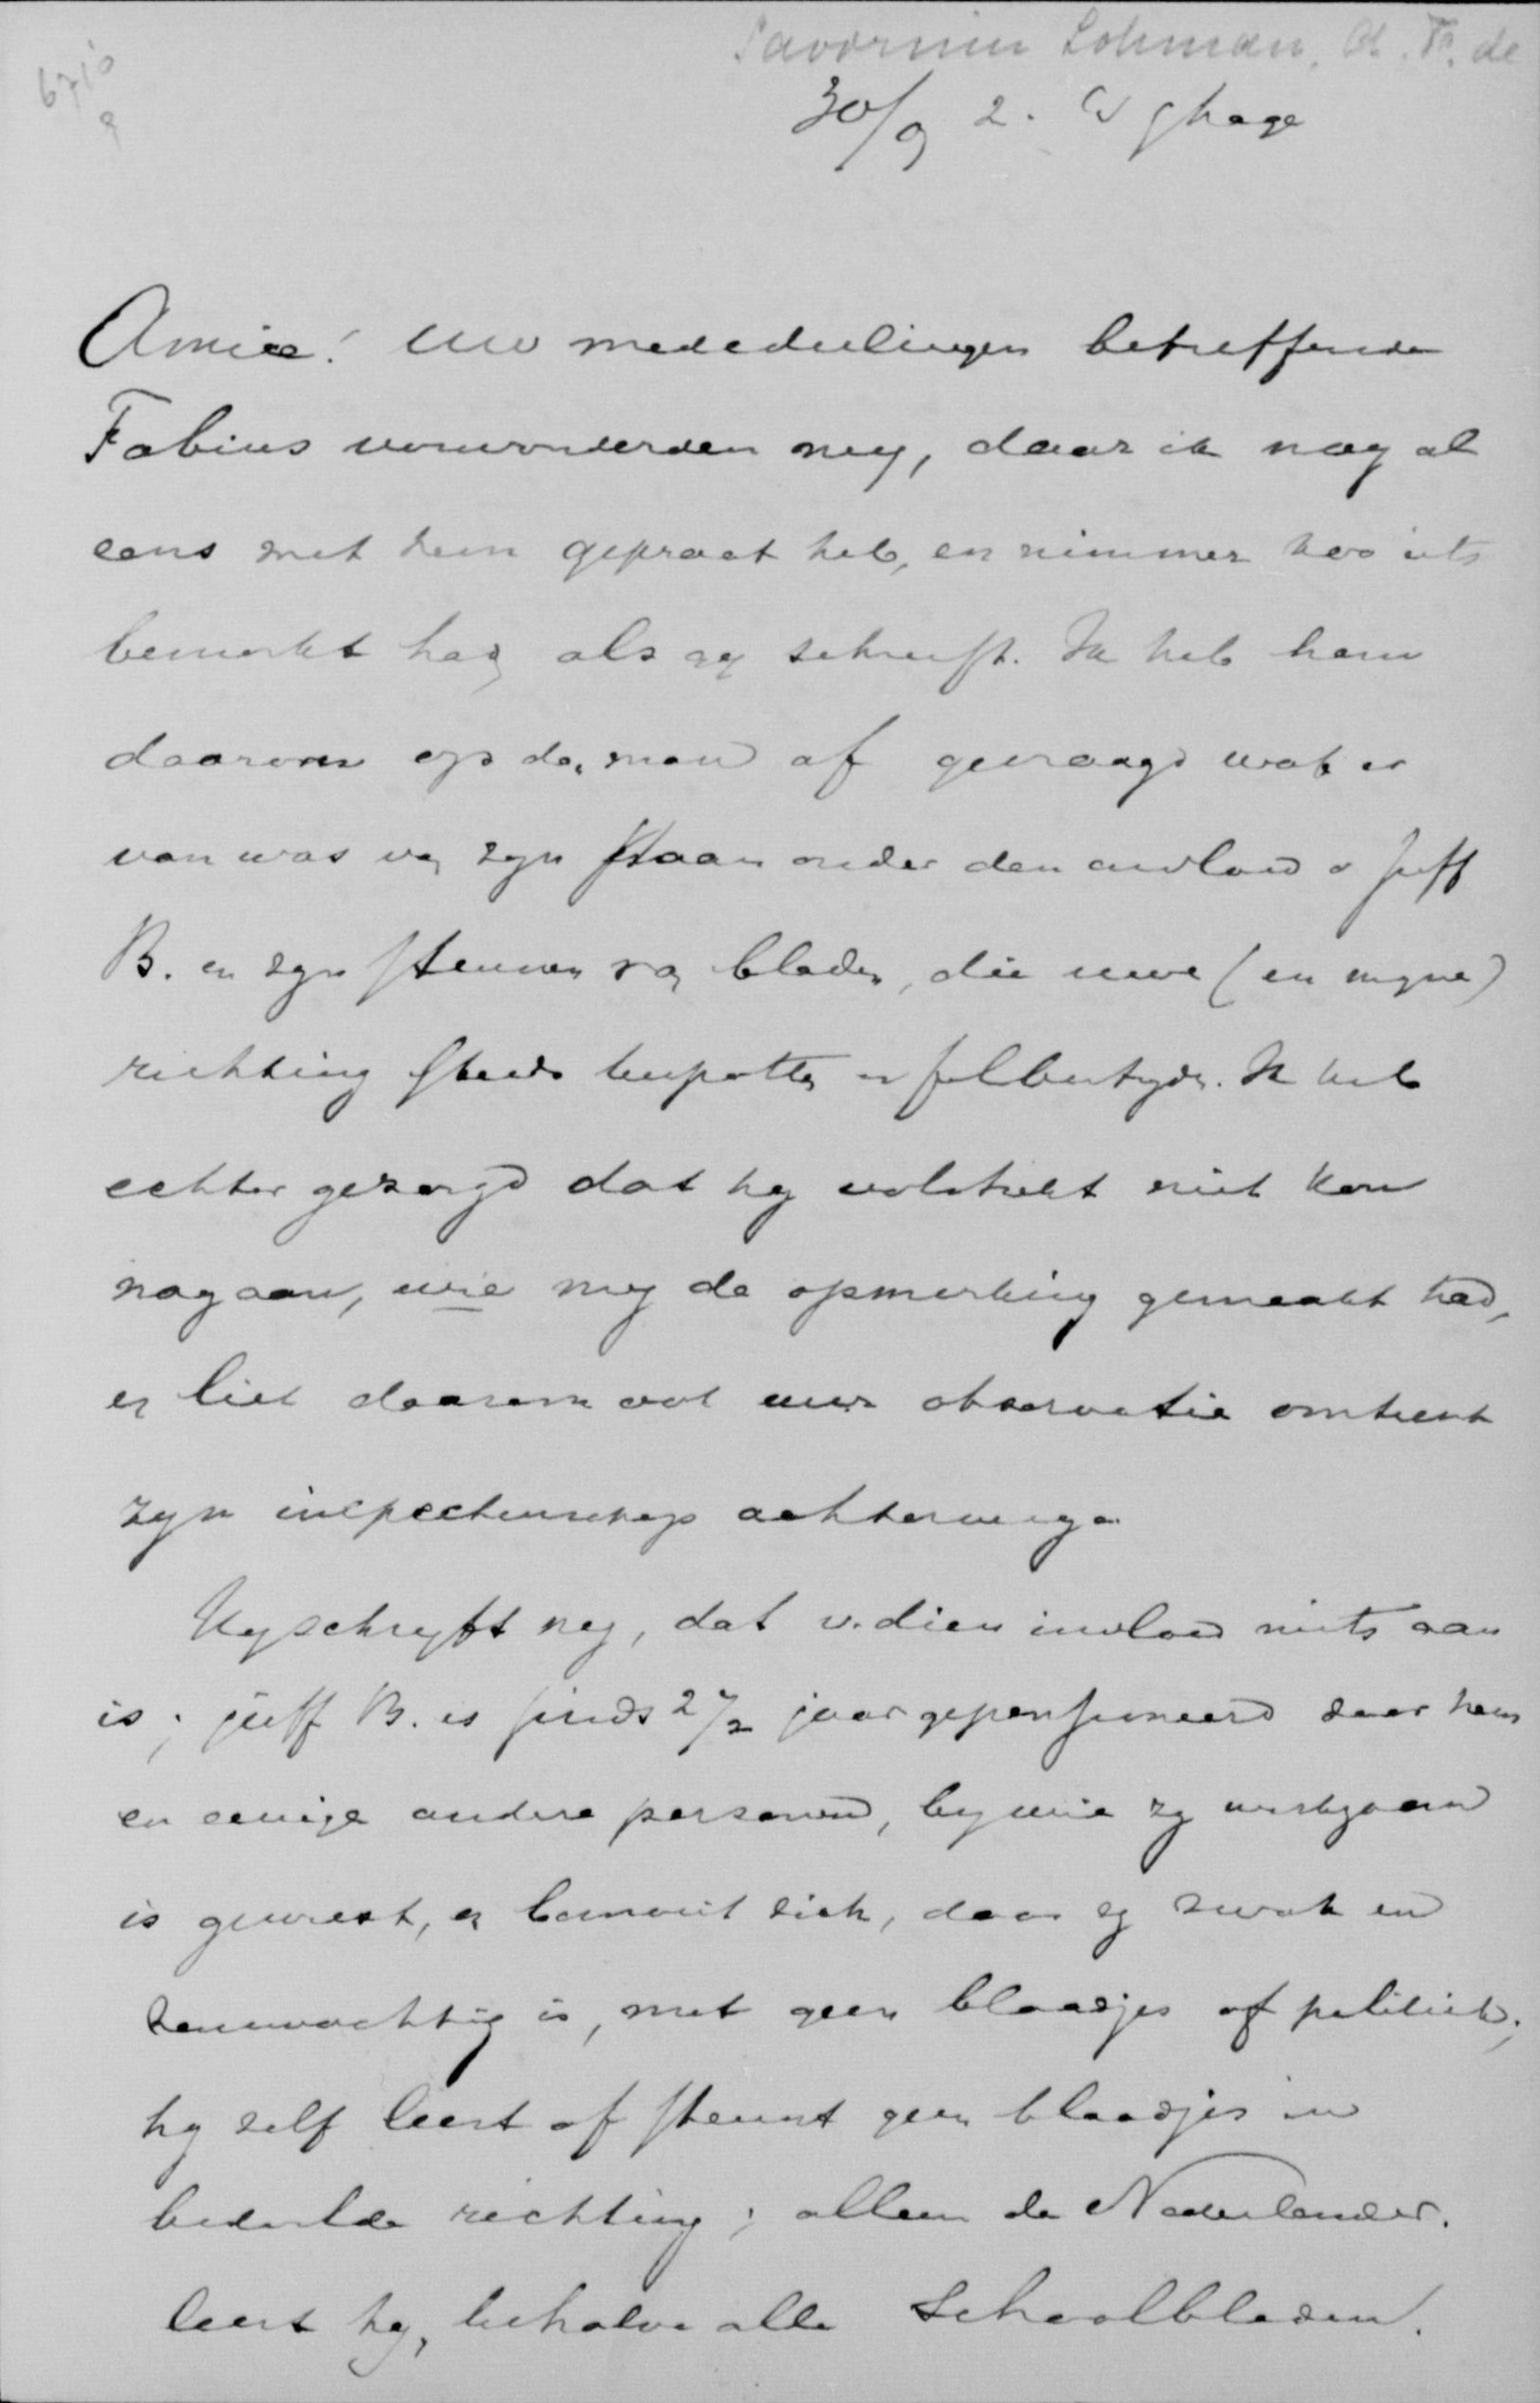 Savornin Lohman, A. F. de
6710
9
30/9 2. 's Ghage
Amice! Uw mededeelingen betreffende
Fabius verwonderden mij, daar ik nog al
eens met hem gepraat heb, en nimmer zoo iets
bemerkt had als gij schrijft. Ik heb hem
daarom op den man af gevraagd wat er
van was van zijn staan onder den invloed v Juff
B. en zijn steunen van bladen, die uwe (en mijne)
richting steeds bespotten en
echter gezorgd dat hij volstrekt niet kon
nagaan, wie mij de opmerking gemaakt had,
en liet daarom ook uwe observatie omtrent
zijn inspecteurschap achterwege.
Hij schrijft mij, dat v. dien invloed niets aan
is; juff B. is sinds 2 1/2 jaar gepensioneerd door hem
en eenige andere personen, bij wie zij werkzaam
is geweest, en bemoeit zich, daar zij zwak en
zenuwachtig is, met geen blaadjes of politiek;
hij zelf leest of steunt geen blaadjes in
bedoelde richting; alleen de Nederlander.
leest hij, behalve alle Schoolbladen.